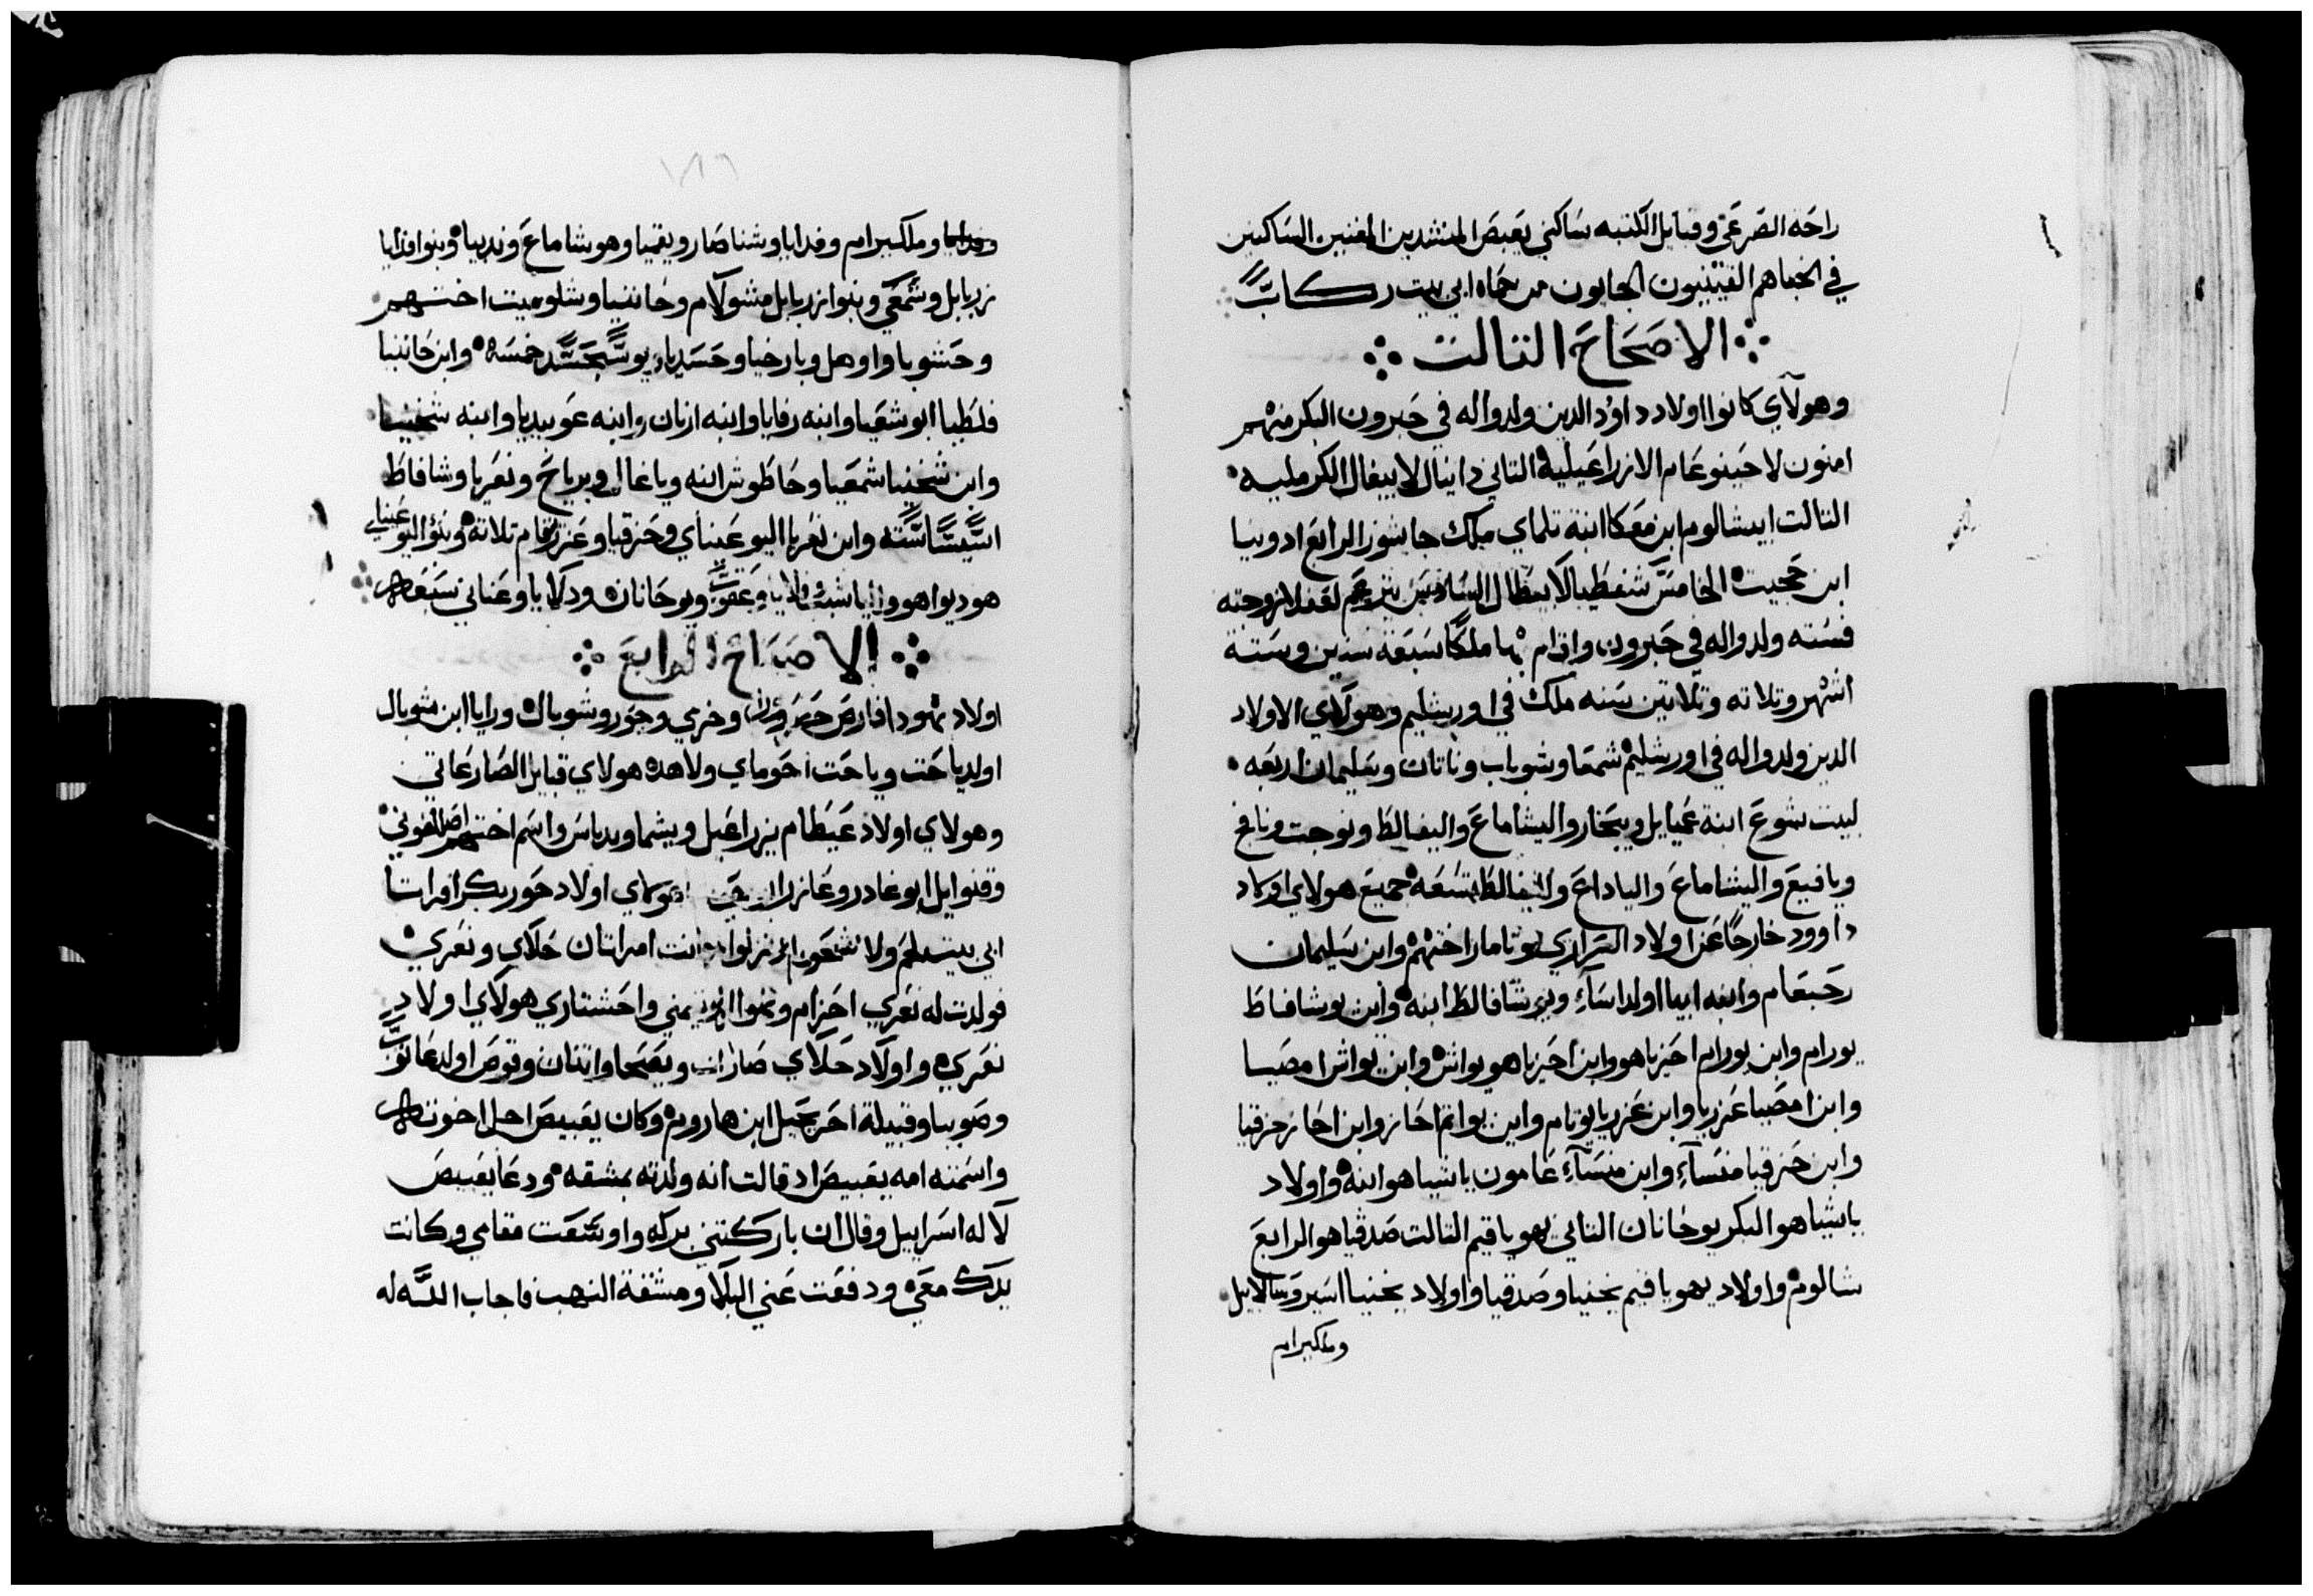 راحه الصرعي وقبايل الكتبه ساكني يعبص المنشدين المغنيين الساكنين
في الخبا هم القينيون الجايون من حماه ابي بيت ركاب
الاصحاح التالت
وهولاي كانوا اولاد داوود الدين ولدوا له في حبرون البكر منهم
امنون لاحينوعام الازراعيليه التاني دانيال لابيغال الكرمليه
التالت ابيشالوم ابن معكا ابنة تلماي ملك جاشور الرابع ادونيا
ابن حجيت الخامس شفطيا لابيطال السادس لعغلا زوجته
فسته ولدوا له في حبرون واقام بها ملكا سبعة سنين وستة
اشهر وتلاته وتلاتين سنه ملك في اورشليم وهولاي الاولاد
الدين ولدوا له في اورشليم شمعا وشوباب وناتان وسليمان اربعه
لبيت شوع ابنة عميايل ويبحار واليشاماع واليفالط ونوجت ونافخ
ويافيع واليشاماع والياداع واليفالط تسعه جميع هولاي اولاد
داوود خارجا عن اولاد السراري وتامار اختهم وابن سليمان
رحبعام وابنه ابيا اولد اساء ويوشافاط ابنه وابن يوشافاط
يورام وابن يورام احزياهو وابن احزياهو يواش وابن يواش امصيا
وابن امصيا عزريا وابن عزريا يوتام وابن يواتم احاز وابن احاز حزقيا
وابن حزقيا منساء وابن منساء عامون ياشياهو ابنه واولاد
ياشياهو البكر يوحانان التاني يهوياقيم التالت صدقياهو الرابع
شالوم واولاد يهوياقيم يخنيا وصدقيا واولاد يخنيا اسير وسالاتيل
وملكيرام
وملكيرام وفدايا وشناصار ويقميا وهوشاماع وندبيا وبنوا فدايا
زربابل وشمعي وبنوا زربابل مشولام وحاننيا وشلوميت اختهم
وحشوبا واوهل وبارخيا وحسديا يوشبحسد خمسه وابن حاننيا
فلطيا ابو شعيا وابنه رفايا وابنه ارنان وابنه عوبيديا وابنه شخنيا
وابن شخنيا شمعيا وحاطوش ابنه وياغال وبرياح ونعريا وشافاط
ستة وابن نعريا اليوعيناي وحزقيا وعزرقام تلاته وبنو اليوعيناي
هوديواهو وعقوب ويوحانان ودلايا وعناني سبعه
الاصحاح الرابع
اولاد يهودا فارص حصرون وخرمي وحور وشوبال ورايا ابن شوبال
اولد ياحت وياحت احوماي ولاهد هولاي قبايل الصارعاتي
وهولاي اولاد عيطام يزراعيل ويشما ويدباس واسم اختهم
وفنوايل ابو غادور وعازر اولاد حور بكر افراتا
ابي بيت لحم ولاشحور كانت امراتان حلاي ونعري
فولدت له نعري احزام وتيمني واحشتاري هولاي اولاد
نعري واولاد حلاي صارات ويصحا واتنان وقوص اولد عانوب
وصوبيا وقبيلة احرحيل ابن هاروم وكان يعبيص اجل اخوته
واسمته امه يعبيص اد قالت انه ولدته بمشقه ودعا يعبيص
لاله اسراييل وقال ان باركتني بركه واوسعت مقامي وكانت
يدك معي ودفعت عني البلا ومشقة النهب فاجاب الله له